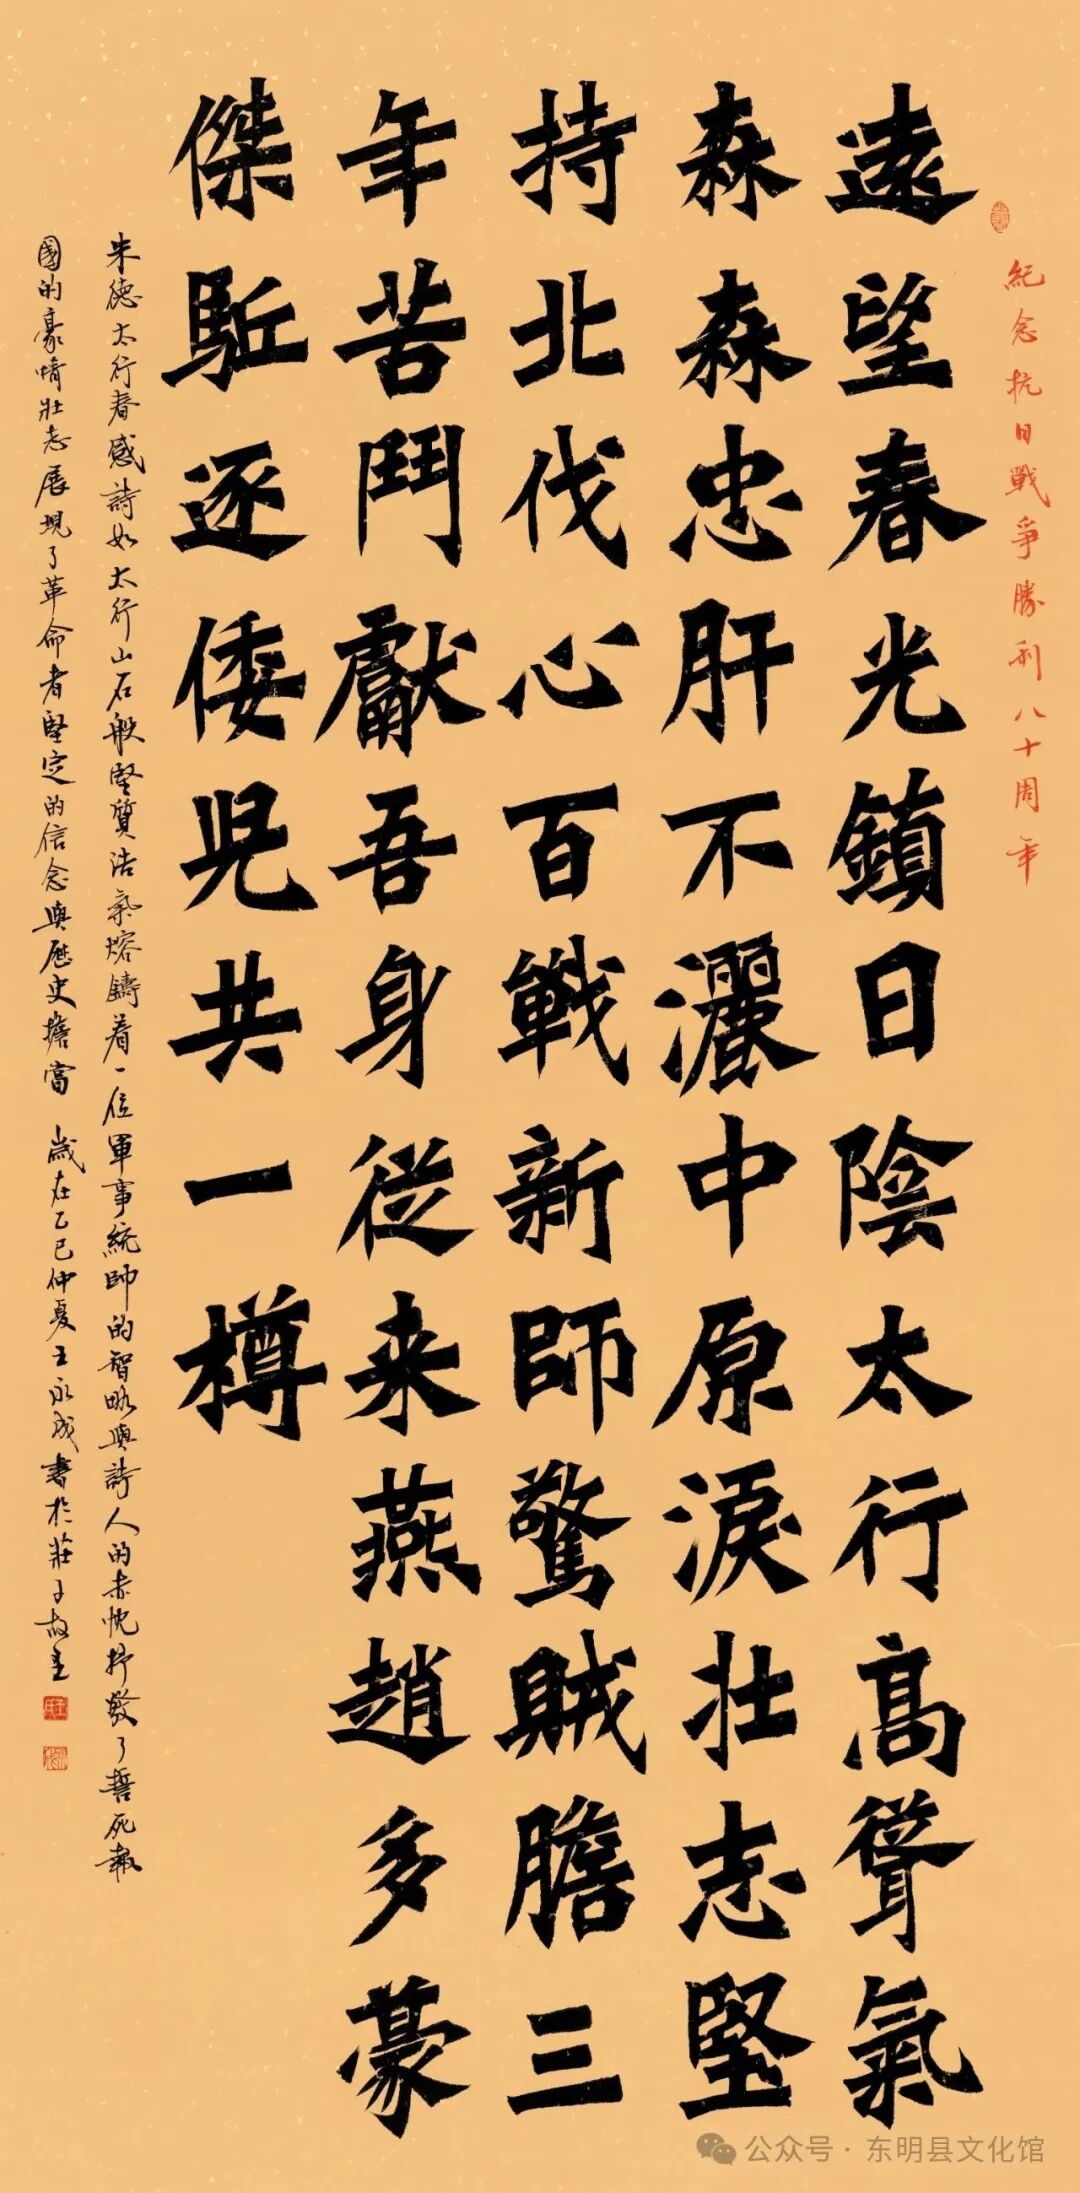 紀念抗日戰爭勝利八十周年
遠望春光鎮日陰太行髙聳氣
森森忠肝不灑中原淚壯志堅
持北伐心百戰新師驚賊膽三
年苦鬥獻吾身從来燕趙多豪
傑駈逐倭児共一樽
朱德太行春感詩如太行山石般堅質浩氣熔鑄着一位軍事統帥的智略與詩人的赤忱抒發了誓死報
國的豪情壯志展現了革命者堅定的信念與歷史擔當 歲在乙巳仲夏王永成書於莊子故里
公众号 · 东明县文化馆